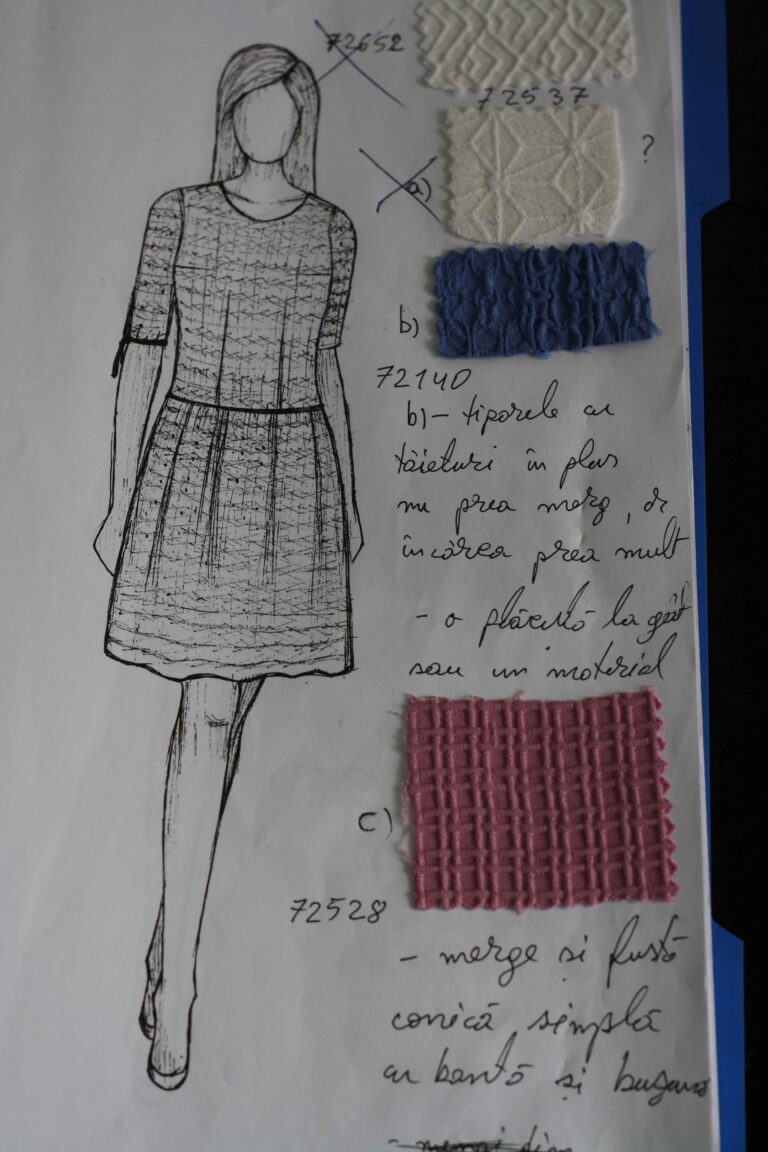 72652
72537
a)
?
b)
72140
b) - tiparele cu
tăieturi în plus
nu prea merg, se
încarcă prea mult
- o plăcuță la gât
sau un material
c)
72528
- merge și fustă
conică simplă
cu bantă și buzunare